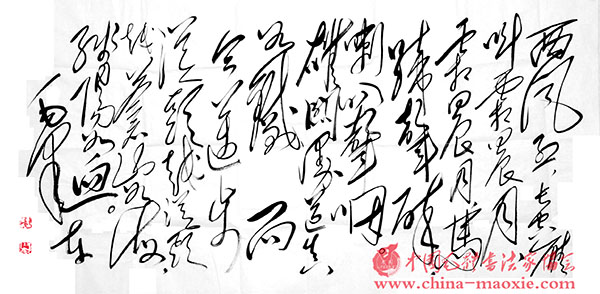 西风烈,长空雁
叫霜晨月
霜晨月马
蹄声碎,
喇叭声咽。
雄关漫道真
如铁而
今迈步
从头越从头
越苍山如海,
残阳如血。
毛泽东
中国毛体书法家协会
www.china-maoxie.com